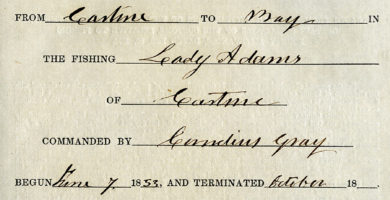 FROM Castine TO Bay IN
THE FISHING Lady Adams
OF Castine
COMMANDED BY Cornelius Gray
BEGUN June 7. 1853, AND TERMINATED October 18